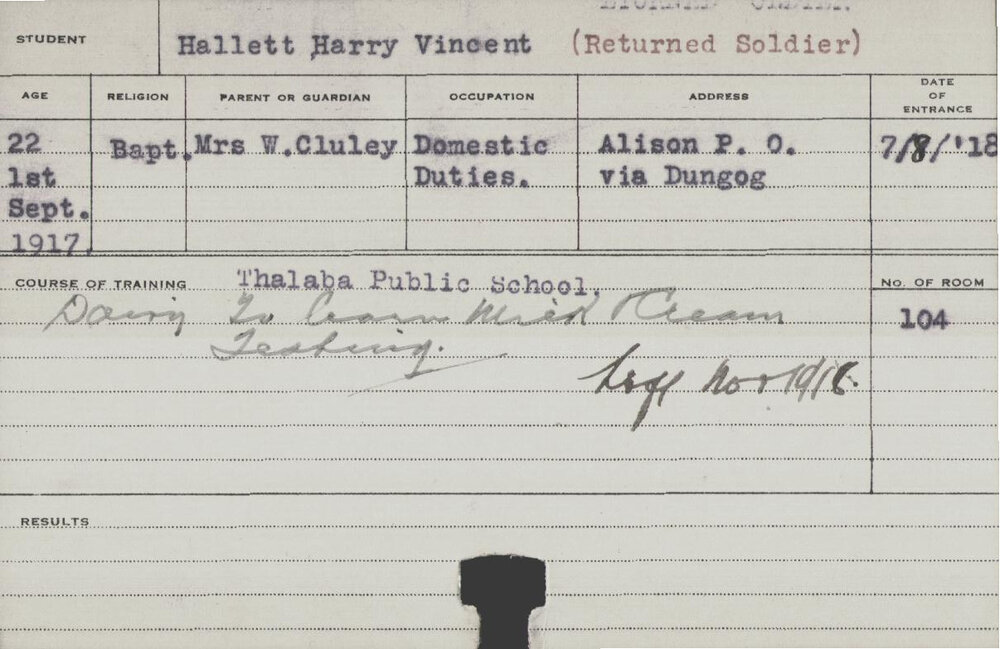 STUDENT Hallett Harry Vincent (Returned Soldier)
AGE RELIGION PARENT OR GUARDIAN OCCUPATION ADDRESS DATE OF ENTRANCE
22 Bapt. Mrs W.Cluley Domestic Alison P. O. 7/8/'18
1st Duties. via Dungog
Sept.
1917.
COURSE OF TRAINING Thalaba Public School. No. OF ROOM
Dairy To learn Milk & Cream 104
Testing.
Left Nov 1918.
RESULTS